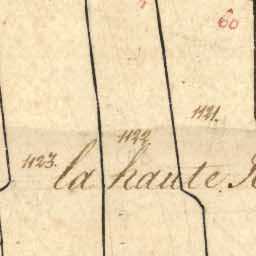 60
1121.
1122.
1123.
la haute